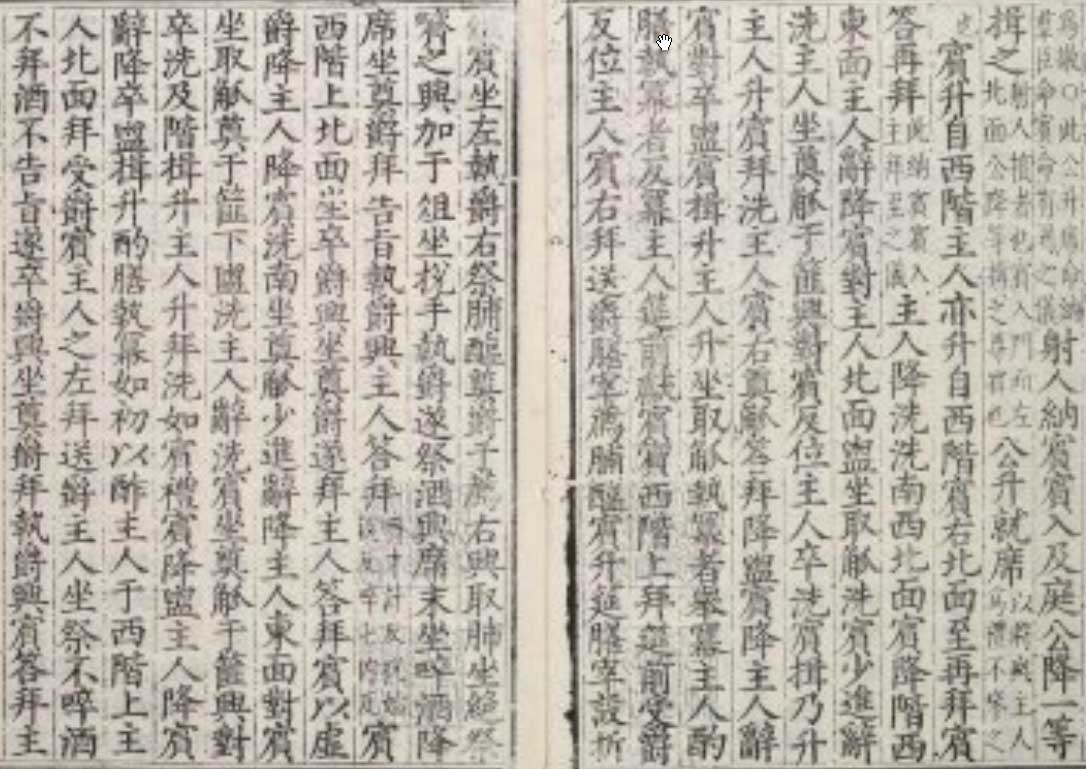 射人納賓賓入及庭公降一等
揖之射人擯者也賓入門而左北面公降等揖之尊賓也公升就席以將與主人為禮不參之
也賓升自西階主人亦升自西階賓右北面至再拜賓
答再拜既納賓賓入主拜至之儀主人降洗洗南西北面賓降階西
東面主人辭降賓對主人北面盥坐取觚洗賓少進辭
洗主人坐奠觚于篚興對賓反位主人卒洗賓揖乃升
主人升賓拜洗主人賓右奠觚答拜降盥賓降主人辭
賓對卒盥賓揖升主人升坐取觚執冪者舉冪主人酌
膳執冪者反冪主人筵前獻賓賓西階上拜筵前受爵
反位主人賓右拜送爵膳宰薦脯醢賓升筵膳宰設折
賓坐左執爵右祭脯醢奠爵于薦右興取肺坐絕祭
嚌之興加于俎坐挩手執爵遂祭酒興席末坐啐酒降
席坐奠爵拜告旨執爵興主人答拜賓
西階上北面坐卒爵興坐奠爵遂拜主人答拜賓以虛
爵降主人降賓洗南坐奠觚少進辭降主人東面對賓
坐取觚奠于篚下盥洗主人辭洗賓坐奠觚于篚興對
卒洗及階揖升主人升拜洗如賓禮賓降盥主人降賓
辭降卒盥揖升酌膳執冪如初以酢主人于西階上主
人北面拜受爵賓主人之左拜送爵主人坐祭不啐酒
不拜酒不告旨遂卒爵興坐奠爵拜執爵興賓答拜主